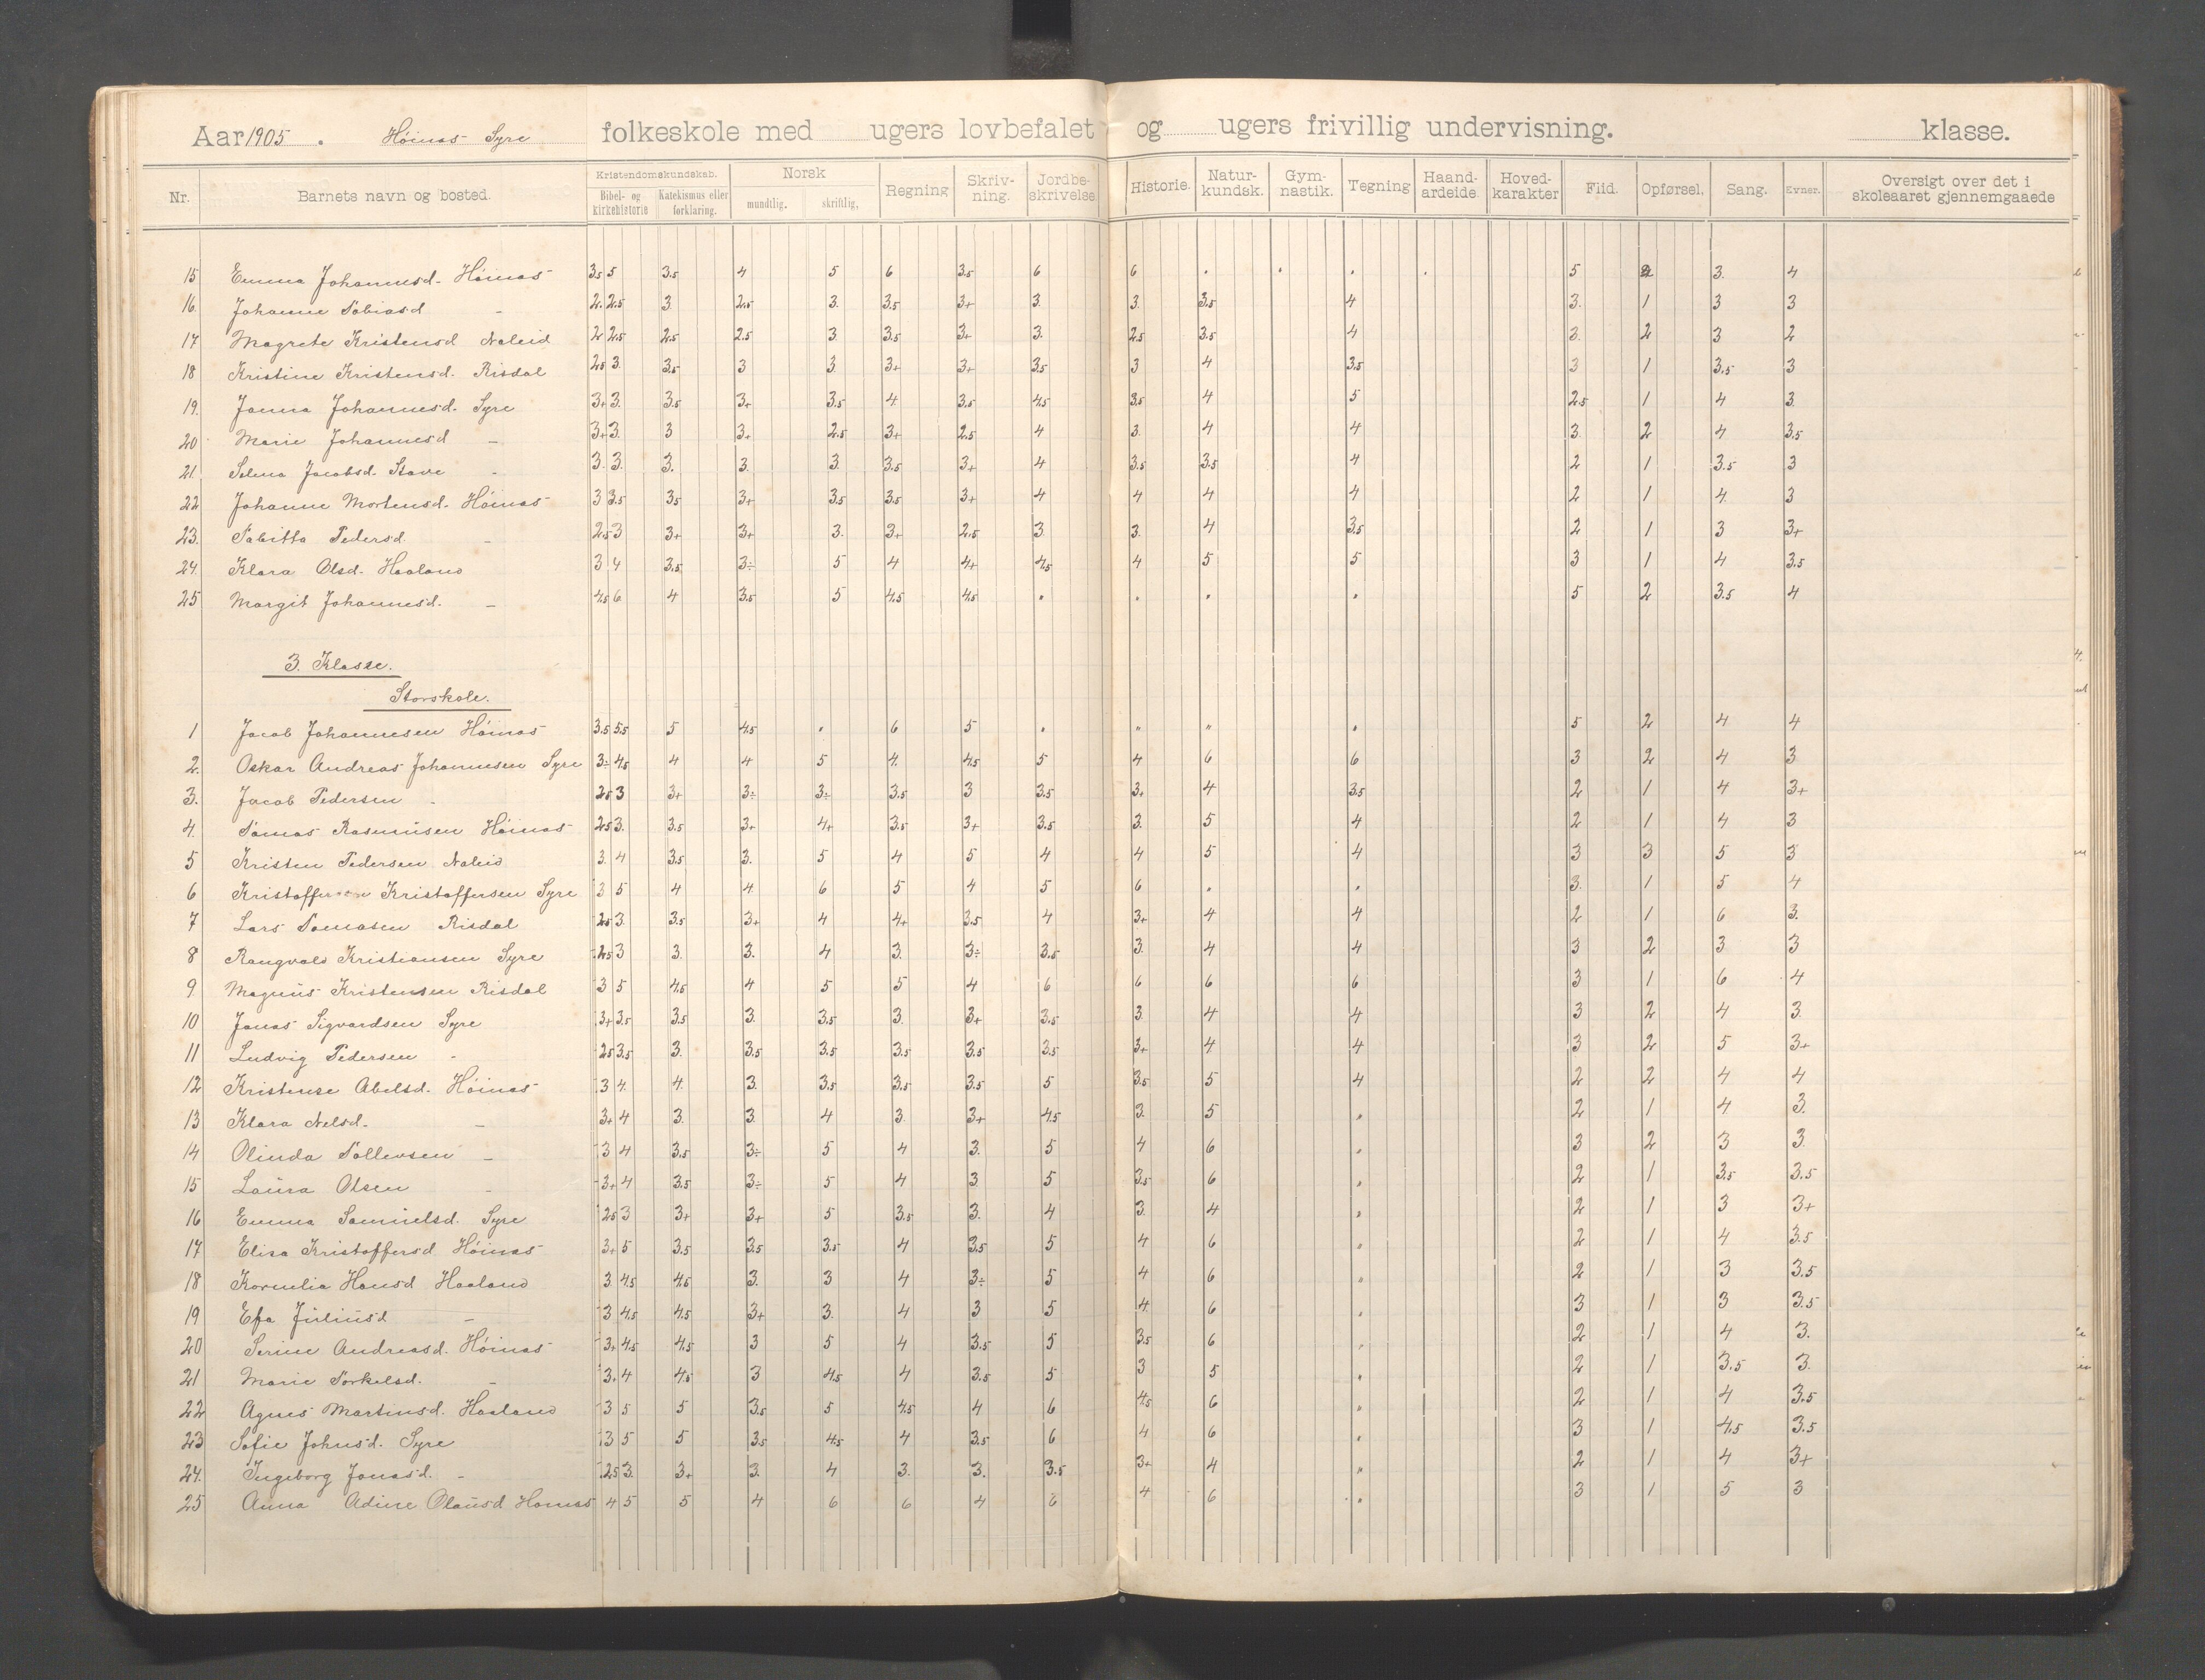 Aar 1905. Höinas Syre folkeskole med ugers lovbefalet og ugers frivillig undervisning. klasse.
Nr. Barnets navn og bosted. Kristendomskundskab. Bibel- og kirkehistorie Katekismus eller forklaring. Norsk mundtlig. skriftlig, Regning Skriv-ning. Jordbe-skrivelse Historie. Natur-kundsk. Gym-nastik. Tegning Haand-ardeide. Hoved-karakter Flid. Opførsel. Sang. Evner. Oversigt over det i skoleaaret gjennemgaaede
15 Emma Johannesd. Höinas 3.5 5 3.5 4 5 6 3.5 6 6 . . . . 5 2 3. 4
16. Johanne Tobiasd - 2. 2.5 3 2.5 3. 3.5 3+ 3. 3. 3.5 4 3. 1 3 3
17 Magrete Kristensd Naleid 2 2.5 2.5 2.5 3 3.5 3+ 3. 2.5 3.5 4 3. 2 3 2
18 Kristine Kristensd. Risdal 2.5 3. 3.5 3 3. 3+ 3+ 3.5 3 4 3.5 3 1 3.5 3
19. Janna Johannesd. Syre 3+ 3. 3.5 3+ 3.5 4. 3.5 4.5 3.5 4 5 2.5 1 4 3.
20 Marie Johannesd - 3+ 3. 3 3+ 2.5 3+ 2.5 4 3. 4 4 3. 2 4 3.5
21. Selma Jacobsd. Stave - 3. 3. 3. 3. 3. 3.5 3+ 4 3.5 3.5 4 2 1 3.5 3
22 Johanne Mortensd. Höinas 3 3.5 3.5 3+ 3.5 3.5 3+ 4 4 4 4 2 1 4. 3
23. Tabitta Pedersd. - 2.5 3 3+ 3+ 3. 3+ 2.5 3 3. 4 3.5 2 1 3 3+
24. Klara Olsd. Haaland 3 4 3.5 3÷ 5 4 4+ 4.5 4 5 5 3 1 4 3.5
25 Margit Johannesd. - 4.5 6 4 3.5 5 4.5 4.5 . . . . 5 2 3.5 4
3. Klasse.
Storskole.
1 Jacob Johannesen Höinas 3.5 5.5 5 4.5 . 6 5 . " " . 5 2 4 4
2. Oskar Andreas Johannesen Syre 3÷ 4.5 4 4 5 4. 4.5 5 4 6 6 3 2 4 3
3. Jacob Pedersen - 2.5 3 3+ 3÷ 3÷ 3.5 3 3.5 3+ 4 3.5 2 1 4 3+
4. Tomas Rasmusen Höinas 2.5 3. 3.5 3+ 4+ 3.5 3+ 3.5 3. 5 4 2 1 4 3
5 Kristen Pedersen Naleid 3. 4 3.5 3. 5 4 5 4 4 5 4 3 3 5 3
6 Kristoffer Kristoffersen Syre 3 5 4 4 6 5 4 5 6 . . 3. 1 5 4
7 Lars Tomasen Risdal 2.5 3. 3.5 3+ 4 4+ 3.5 4 3+ 4 4 2 1 6 3.
8 Rangvald Kristiansen Syre 2.5 3 3. 3. 4 3. 3÷ 3.5 3. 4 4 3 2 3 3
9 Magnus Kristensen Risdal 3 5 4.5 4 5 5 4 6 6 6 6 3 1 6 4
10 Jonas Sigvardsen Syre 3+ 3.5 3.5 3. 3.5 3. 3+ 3.5 3. 4 4 3 2 4 3
11 Ludvig Pedersen - 2.5 3.5 3. 3.5 3.5 3.5 3.5 3.5 3+ 4 4 3 2 5 3+
12 Kristense Abelsd. Höinas 3 4. 4. 3. 3.5 3.5 3.5 5 3.5 5 4 2 2 4 4
13 Klara Nelsd. - 3+ 4 3. 3. 4 3. 3+ 4.5 3. 5 " 2 1 4 3.
14 Olinda Tollevsen - 3 4 3.5 3÷ 5 4 3. 5 4 6 " 3 2 3 3.
15 Laura Olsen - 3+ 4 3.5 3÷ 5 4 3 5 3.5 6 " 2 1 3.5 3.5
16 Emma Samuelsd. Syre 2.5 3 3+ 3+ 5 3.5 3. 4 3. 4 " 2 1 3 3+
17 Elisa Kristoffersd Höinas 3+ 5 3.5 3.5 3.5 4 3.5 5 4 6 " 2 1 4 3.5
18 Kornelia Hansd Haaland 3 4.5 4.5 3. 3 4 3÷ 5 4 6 " 2 1 3 3.5
19 Efa Juliusd - 3 4.5 4.5 3+ 3. 4 3 5 4. 6 " 3 1 3 3.5
20 Serine Andreasd. Höinas 3+ 4.5 4.5 3 5 4 3.5 5 3.5 6 " 2 1 4 3.
21 Marie Torkelsd. - 3+ 4 4.5 3 4.5 4 3.5 5 3 5 " 2 1 3.5 3.
22 Agnes Martinsd. Haaland 3 5 5 3.5 5 4.5 4 6 4.5 6 " 2 1 4 3.5
23 Sofie Johnsd. Syre 3 5 5 3.5 4.5 4 3.5 6 4 6 " 3 1 4.5 3.5
24. Ingeborg Jonasd. - 2.5 3. 3+ 3. 4 3. 3. 3.5 3+ 4 " 2 1 4 3+
25 Anna Adine Olausd Hoinas 4 5 5 4 6 6 4 6 4 6 " 3 1 5 3